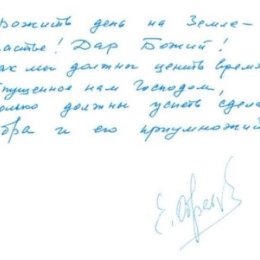 рожить день на Земле-
астье! Дар Божий!
ак мы должны ценить время,
тпущенное нам Господом,
олько должны успеть сдела
бра и его приумножи